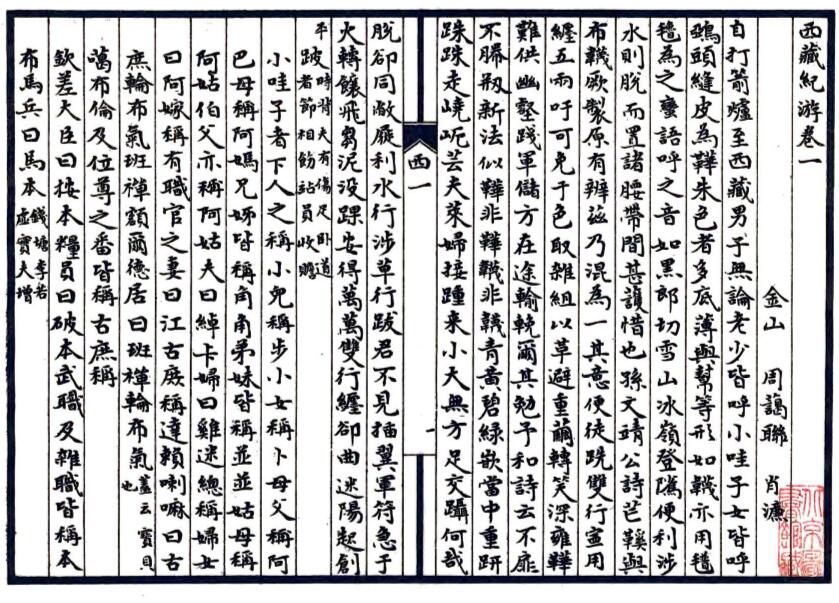 西藏紀游卷一
金山 周藹聯 肖濂
自打箭爐至西藏男子無論老少皆呼小哇子女皆呼
鵶頭縫皮為鞾朱色者多底薄與幫等形如韈亦用氊
氊為之蠻語呼之音如黑郎切雪山冰嶺登隲便利涉
水則脫而置諸腰帶間甚護惜也孫文靖公詩芒鞵與
布韈厥製原有辨茲乃混為一其意便徒跣雙行寔用
纏五兩吁可免于色取雜組以草避重繭轉笑深雍鞾
難供幽壑踐軍儲方在途輸輓爾其勉予和詩云不扉
不屩刱新法似鞾非鞾韈非韈青黄碧綠嵌當中重趼
跌跌走嶢屼芸夫萊婦接踵来小大無方足交躡何哉
西一
脫卻同敝屣利水行涉草行跋君不見插翼軍符急于
火轉饟飛芻泥没踝安得萬萬雙行纏卻曲迷陽起創
平陂時背夫有傷足卧道者節相飭站員收贍
小哇子者下人之稱小兒稱步小女稱卜母父稱阿
巴母稱阿媽兄姊皆稱角角弟妹皆稱並並姑母稱
阿姑伯父亦稱阿姑夫曰綽卡婦曰雞迷總稱婦女
曰阿嫁稱有職官之妻曰江古廐稱達賴喇嘛曰古
庶輪布氣班禪額爾德居曰班禪輪布氣蓋云寶貝也
噶布倫及位尊之番皆稱古庶稱
欽差大臣曰按本糧員曰破本武職及雜職皆稱本
布馬兵曰馬本錢塘李若虛實夫增